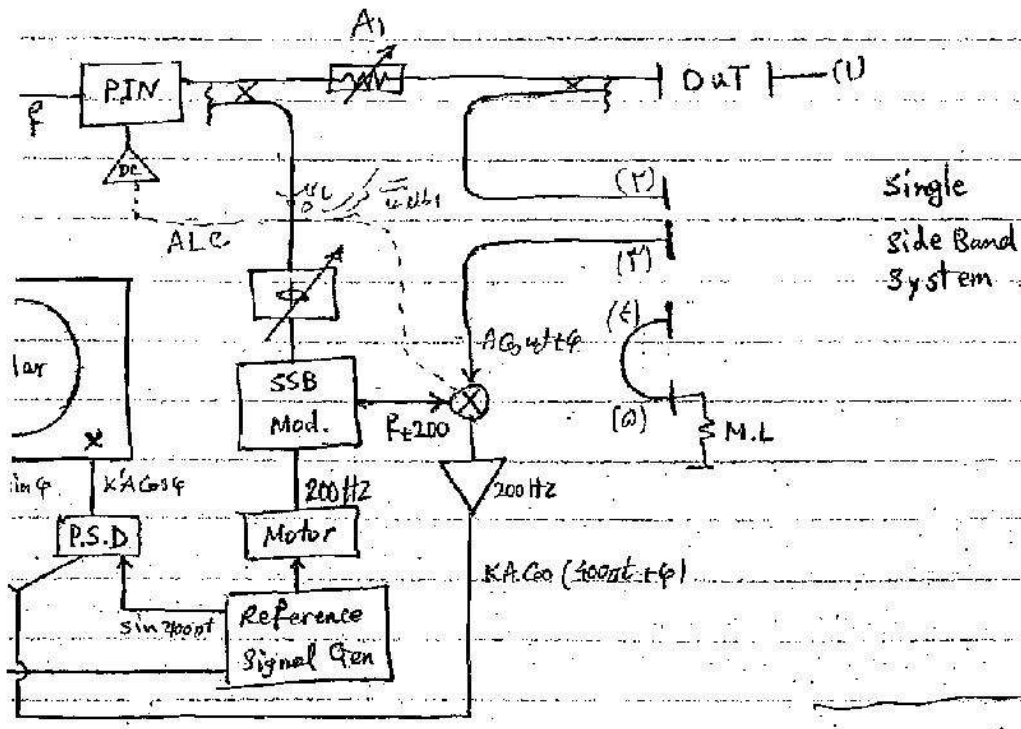 A1
PIN
DUT
(1)
f
DC
(۲)
Single
ALC
(۳)
Side Band
System
(٤)
A Cos ωt+φ
lar
SSB
Mod.
f±200
(۵)
M.L
x
in φ
K'A Cos φ
200HZ
200HZ
P.S.D
Motor
KA.Cos (400πt+φ)
sin 400πt
Reference
Signal Gen